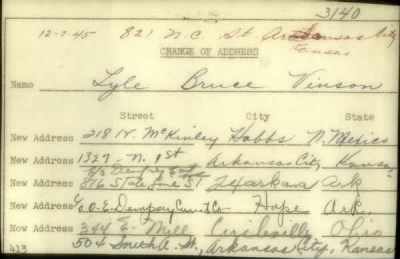 3140
12-7-45 821 N.C St. Arkansas City
Kansas
CHANGE OF ADDRESS
Name Lyle Bruce Vinson
Street City State
New Address 218 N. McKinley Hobbs N. Mexico
New Address 1327-N. 1st Arkansas City Kansas
New Address 816 State Line St Texarkana Ark
New Address c/o O-E-Dempsey Const Co Hope Ark.
New Address 344 E- Mill Circleville Ohio
413 504 South A. St., Arkansas City, Kansas